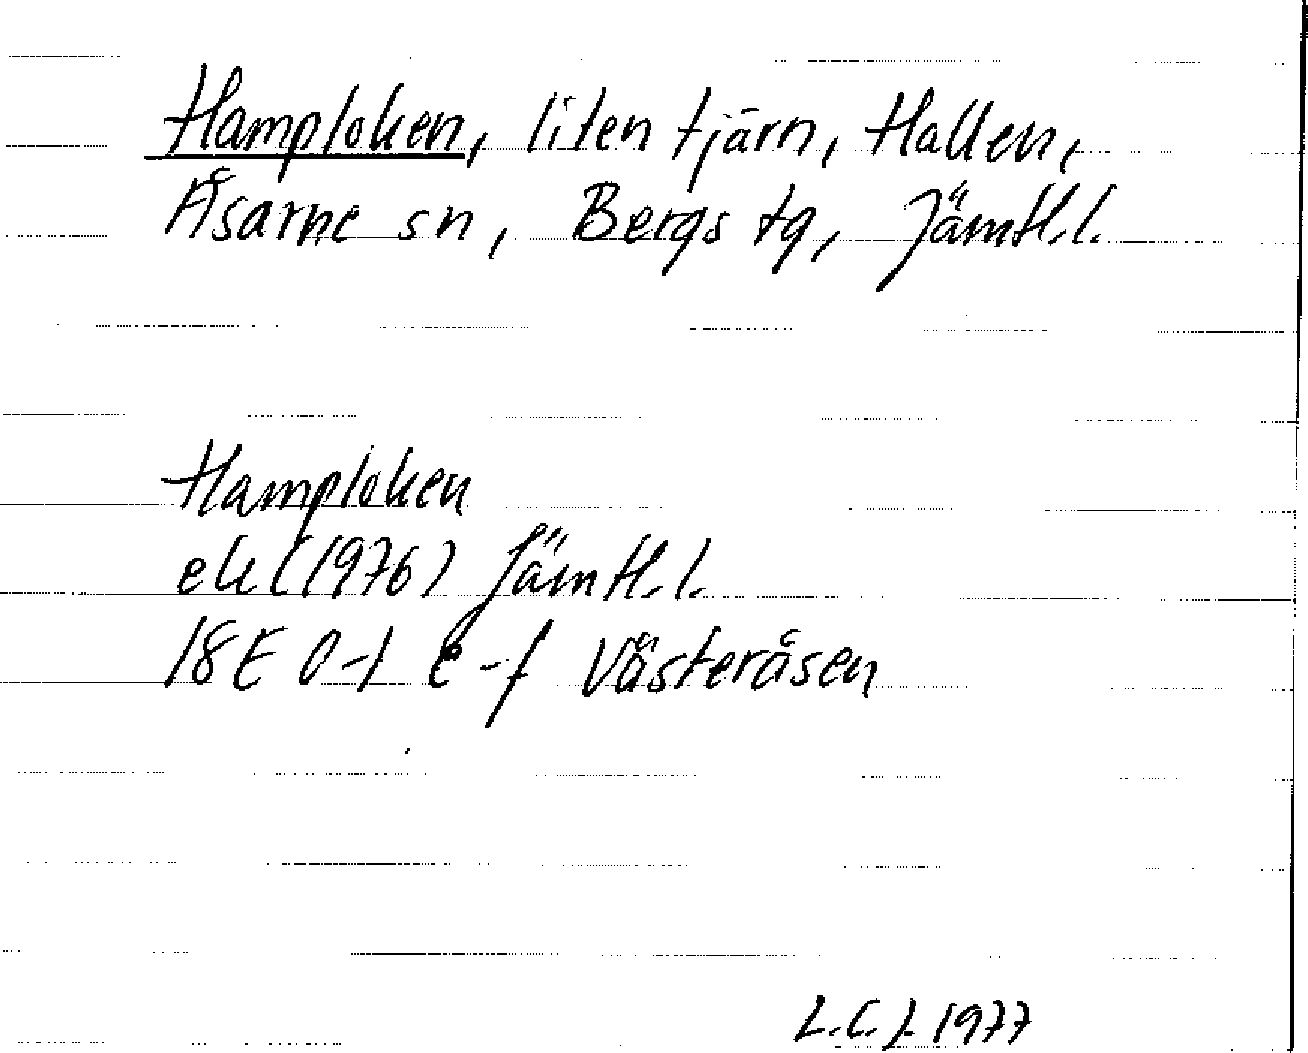 Hamploken, liten tjärn, Hallen,
Åsarne sn, Bergs tg, Jämtl.l.
Hamploken
ek (1976) Jämtl.l.
18E 0-1 e-f Västeråsen
L.C.J. 1977